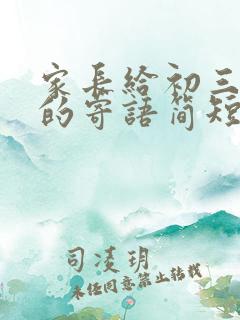 家长给初三
的寄语简短
司凌玥
未经同意禁止转载